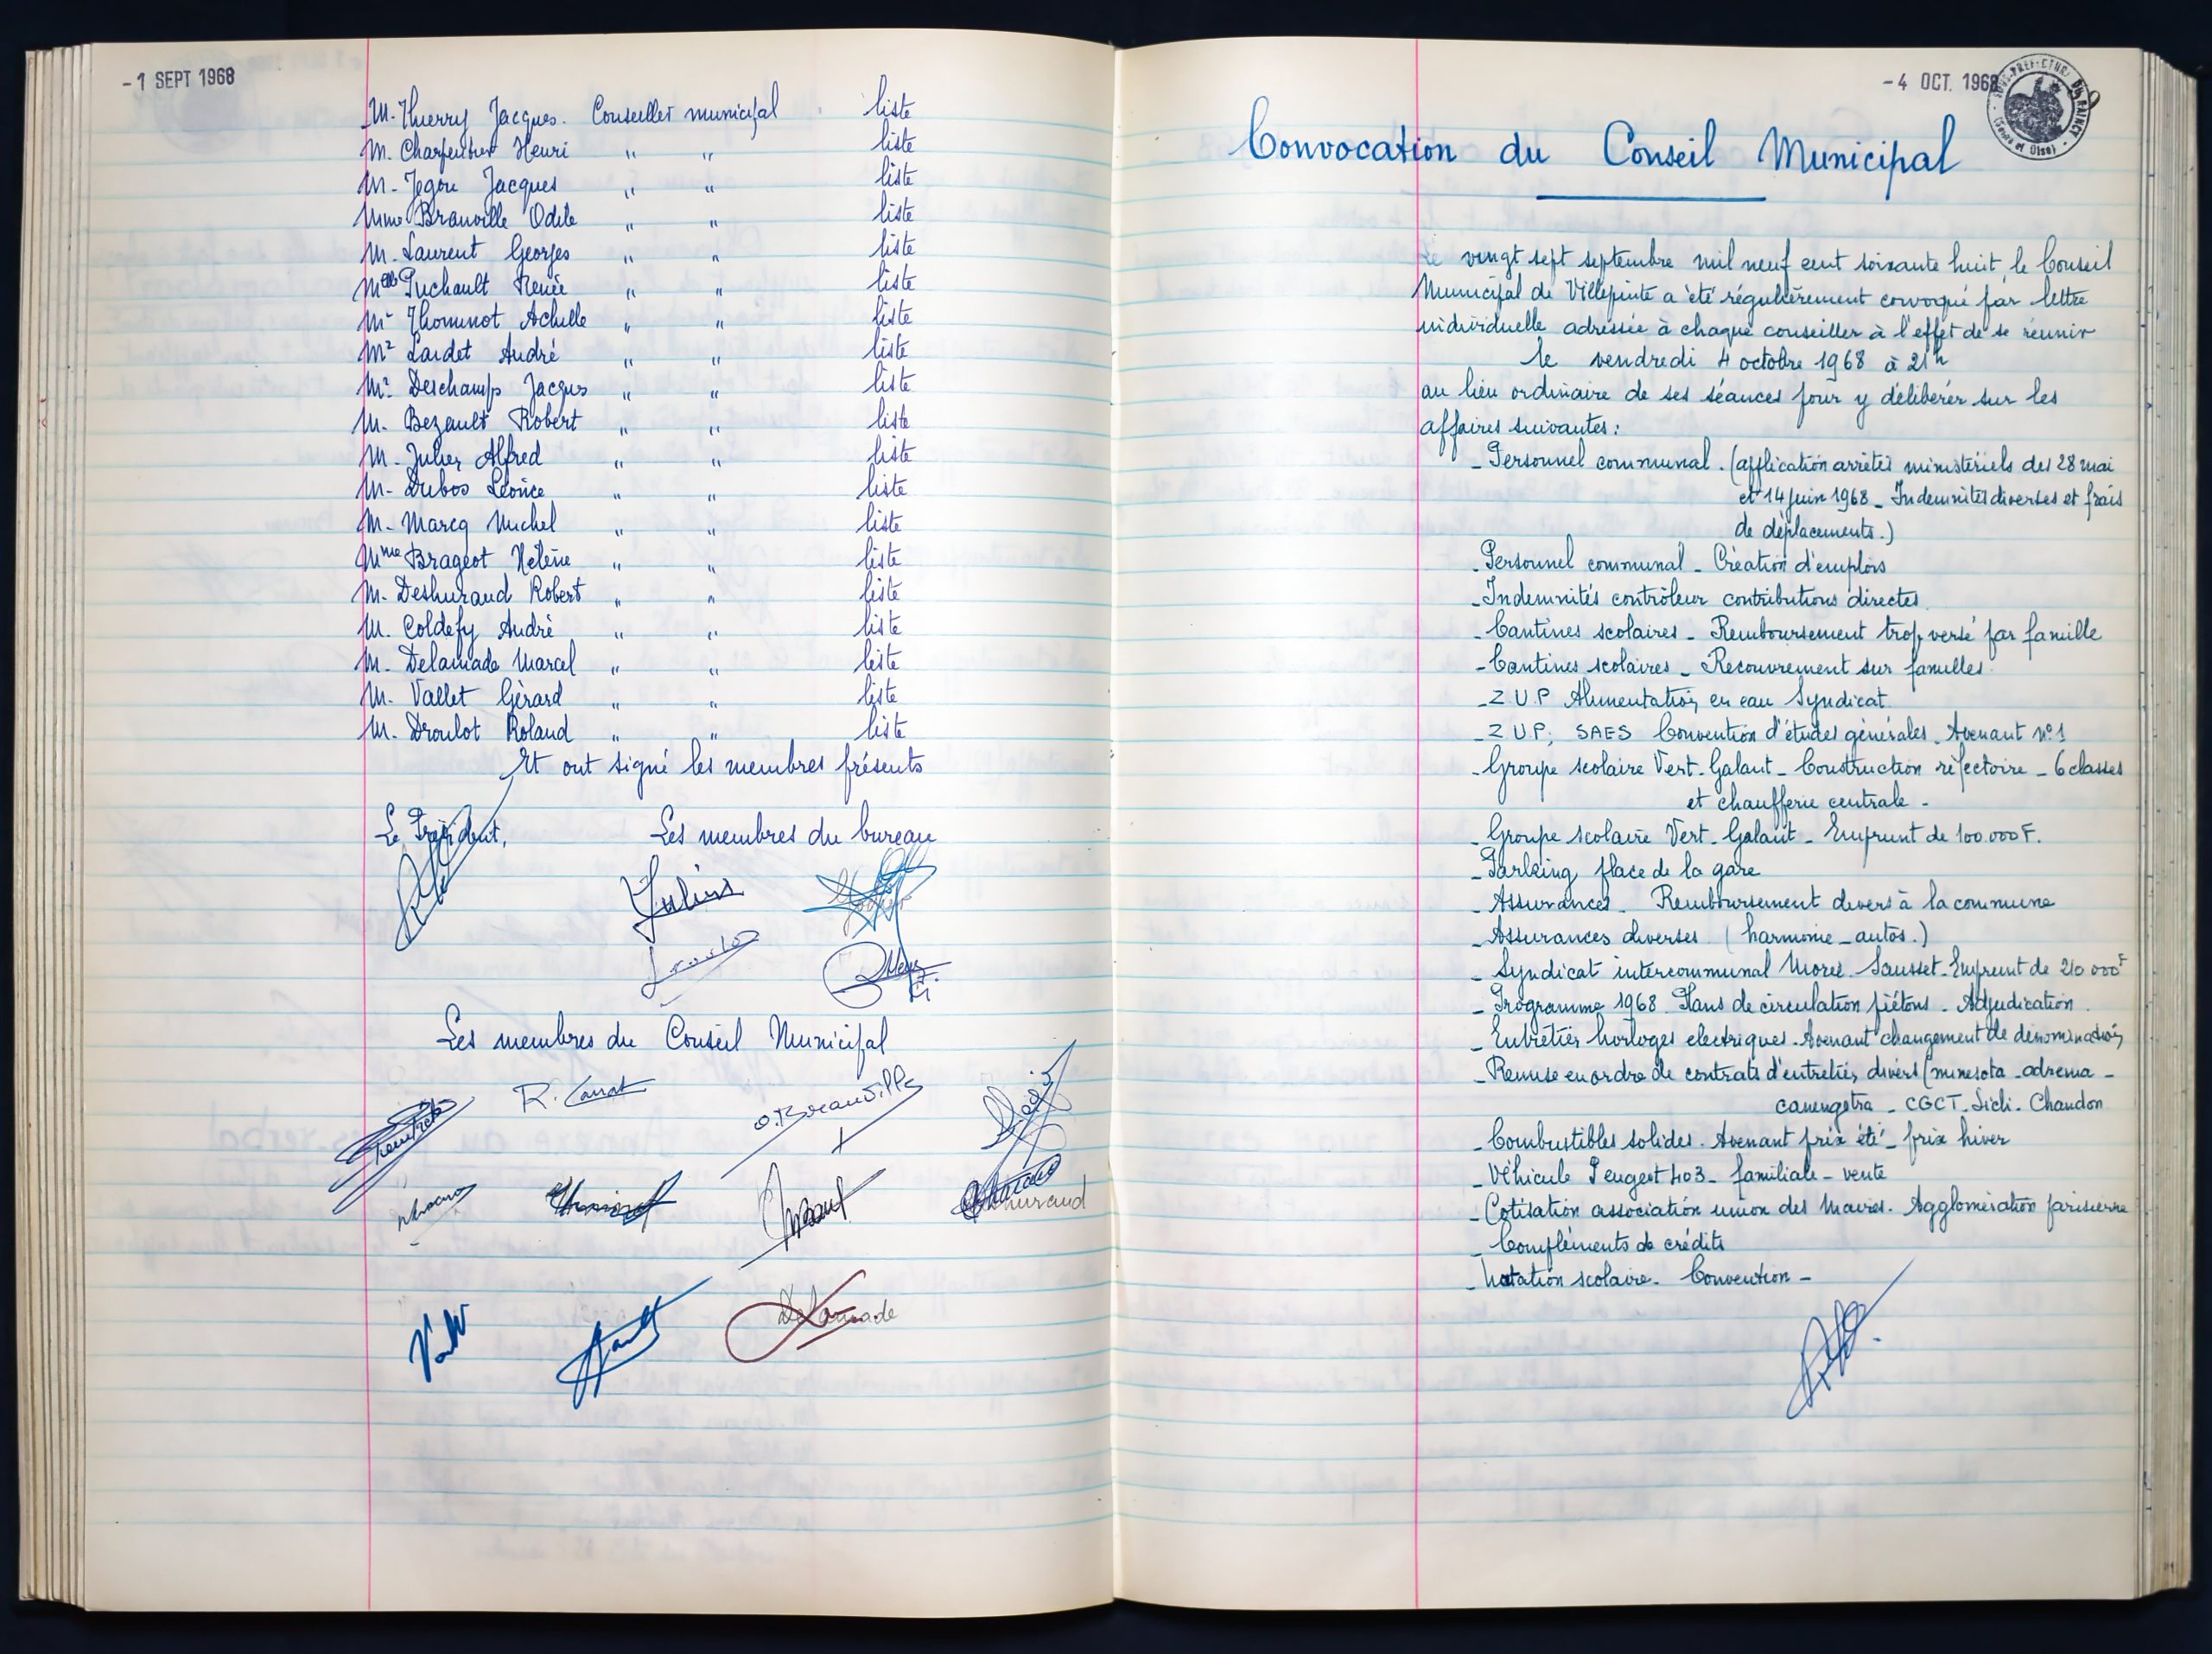 - 1 SEPT 1968
M. Thierry Jacques. Conseiller municipal liste
M. Charpentier Henri " " liste
M. Jegou Jacques " " liste
Mme Branville Odile " " liste
M. Laurent Georges " " liste
Melle Puchault Renée " " liste
Mr Thominot Achille " " liste
Mr Lardet André " " liste
Mr Deschamps Jacques " " liste
M. Bezault Robert " " liste
M. Julien Alfred " " liste
M. Dubos Léonce " " liste
M. Marcq Michel " " liste
Mme Brageot Hélène " " liste
M. Deshuraud Robert " " liste
M. Coldefy André " " liste
M. Delamade Marcel " " liste
M. Vallet Gérard " " liste
M. Droulot Roland " " liste
Et ont signé les membres présents
Le Président, Les membres du bureau
Les membres du Conseil Municipal
O. Branville
Delamade
- 4 OCT. 1968
SOUS-PREFECTURE DU RAINCY (Seine et Oise)
Convocation du Conseil Municipal
Le vingt sept septembre mil neuf cent soixante huit le Conseil
Municipal de Villepinte a été régulièrement convoqué par lettre
individuelle adressée à chaque conseiller à l'effet de se réunir
le vendredi 4 octobre 1968 à 21h
au lieu ordinaire de ses séances pour y délibérer sur les
affaires suivantes :
- Personnel communal . (application arrêtés ministériels des 28 mai
et 14 juin 1968 _ Indemnités diverses et frais
de déplacements.)
- Personnel communal _ Création d'emplois
- Indemnités contrôleur contributions directes
- Cantines scolaires _ Remboursement trop versé par famille
- Cantines scolaires _ Recouvrement sur familles
- Z U.P Alimentation en eau Syndicat
- Z U P; SAES Convention d'études générales. Avenant N°1
- Groupe scolaire Vert-Galant _ Construction réfectoire _ 6 classes
et chaufferie centrale -
- Groupe scolaire Vert-Galant _ Emprunt de 100.000 F.
- Parking place de la gare
- Assurances _ Remboursement divers à la commune
- Assurances diverses (harmonie _ autos.)
- Syndicat intercommunal Morée Sausset - Emprunt de 210 000F
- Programme 1968. Plans de circulation piétons . Adjudication .
- Entretien horloges electriques . Avenant changement de dénomination
- Remise en ordre de contrats d'entretien divers (minesota _ adrema -
canengetra _ CGCT. Sicli. Chandon
- Combustibles solides . Avenant prix été - prix hiver
- Véhicule Peugeot 403 _ familiale _ vente
- Cotisation association union des Maires. Agglomération parisienne
- Compléments de crédits
- Natation scolaire. Convention -